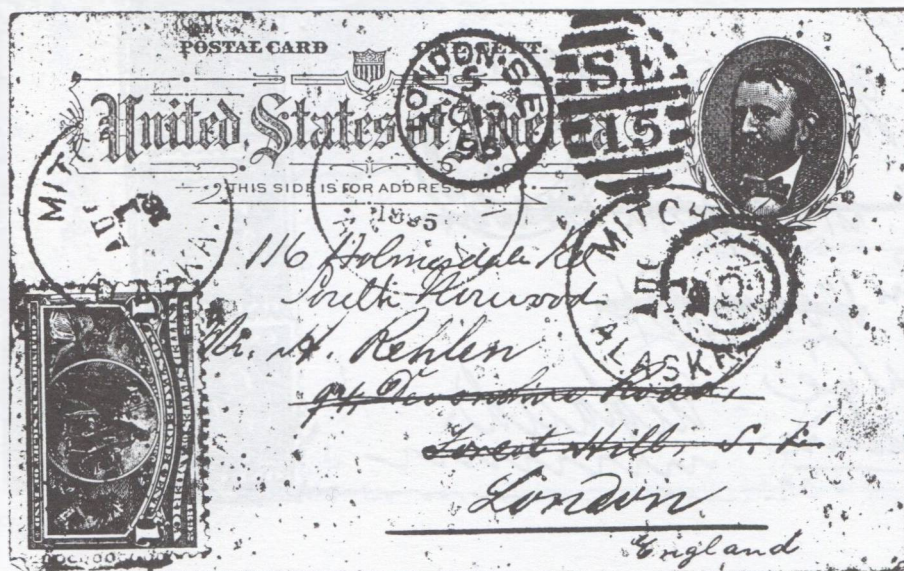 POSTAL CARD
United States of America
THIS SIDE IS FOR ADDRESS ONLY
LONDON. S.E
5
OC 12
95
S.E
15
MIT
ALASKA
1895
MITCH
ALASKA
116 Holmesdale Rd
South Norwood
Mr. H. Rehlen
94, Devonshire Road,
Forest Hill, S. E.
London
England